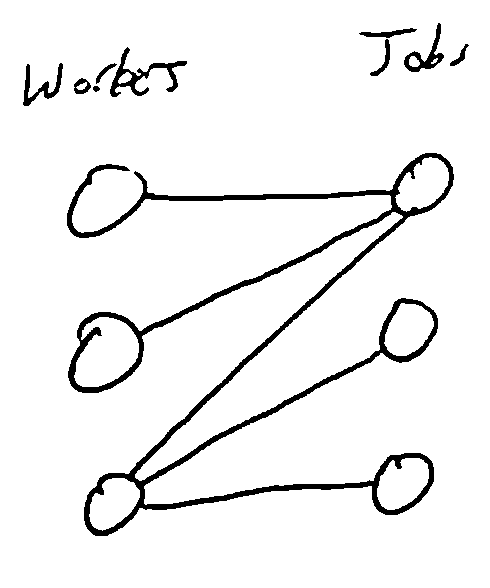 Workers Jobs